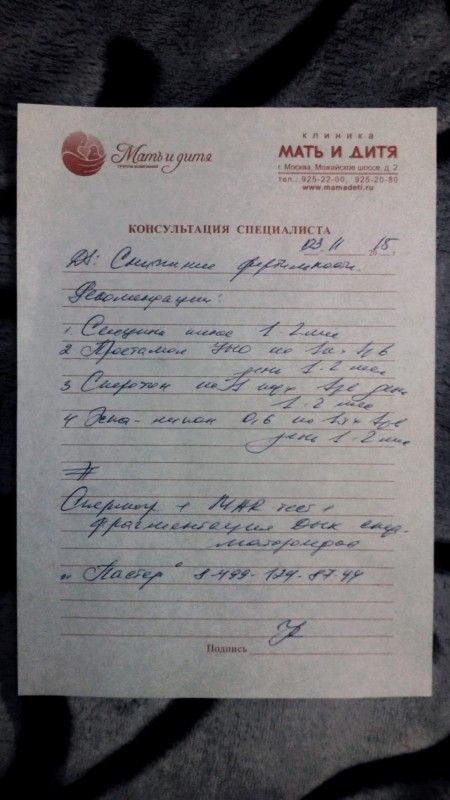 Мать и дитя
ГРУППА КОМПАНИЙ
КЛИНИКА
МАТЬ И ДИТЯ
г. Москва, Можайское шоссе, д. 2
тел.: 925-22-00, 925-20-80
www.mamadeti.ru
КОНСУЛЬТАЦИЯ СПЕЦИАЛИСТА
03 11 15 г.
DS: Снижение фертильности.
Рекомендации:
1. Селцинк плюс 1-2 мес
2 Простамол УНО по 1к × 1р в
день 1-2 мес
3 Сперотон по 1 пц × 1р в день
1-2 мес
4 Эспа-липон 0,6 по 1т × 1р в
день 1-2 мес
Спермогр + MAR тест +
фрагментация ДНК спер-
матозоидов
"Пастер" 8-499-174-87-44
Подпись